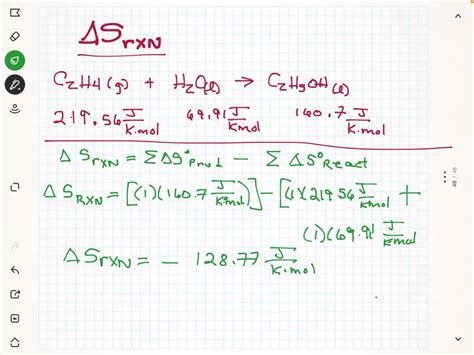 ΔSrxn
C2H4(g) + H2O(l) → C2H5OH(l)
219.56 J/K·mol 69.91 J/K·mol 160.7 J/K·mol
ΔSrxn = ΣΔS°Prod − ΣΔS°React
ΔSRXN = [(1)(160.7 J/K·mol)] − [(1)(219.56 J/K·mol +
(1)(69.91 J/K·mol
ΔSrxn = − 128.77 J/K·mol